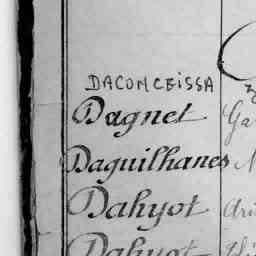 DACONCEISSA
Dagnet Ga
Daguilhanes
Dahyot
Dahyot